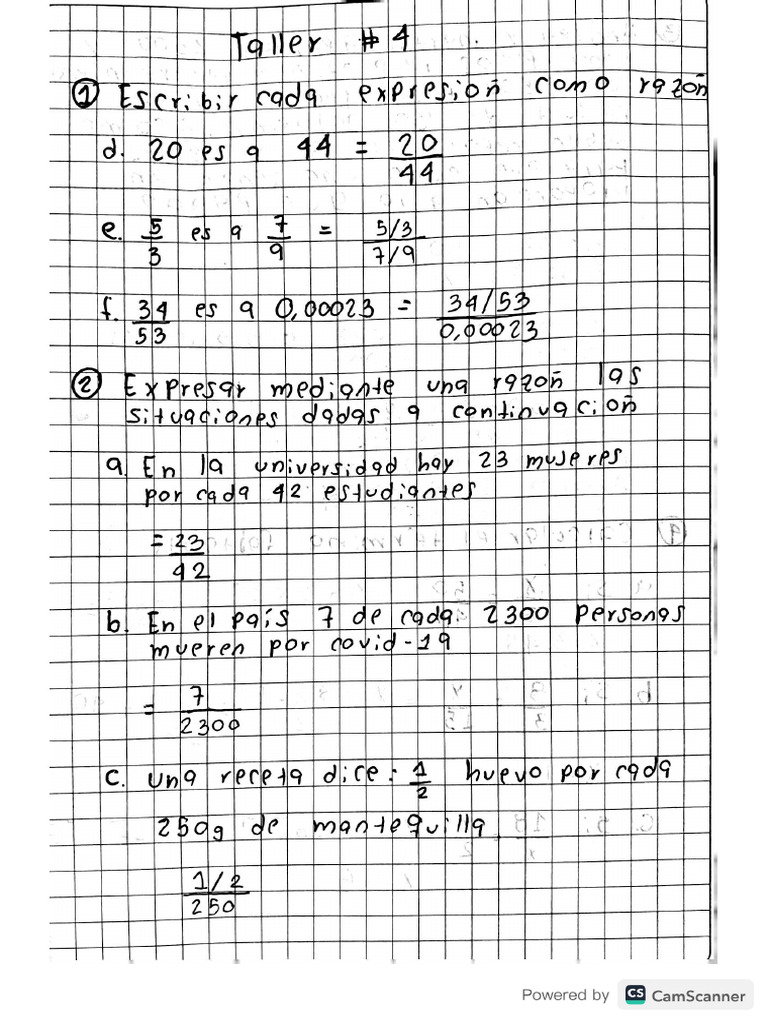 Taller # 4
① Escribir cada expresión como razón
d. 20 es a 44 = 20/44
e. 5/3 es a 7/9 = (5/3)/(7/9)
f. 34/53 es a 0,00023 = (34/53)/0,00023
② Expresar mediante una razón las
situaciones dadas a continuación
a. En la universidad hay 23 museres
por cada 42 estudiantes
= 23/42
b. En el país 7 de cada: 2300 personas
mueren por covid-19
= 7/2300
c. una receta dice: 1/2 huevo por cada
250g de mantequilla
(1/2)/250
Powered by CS CamScanner